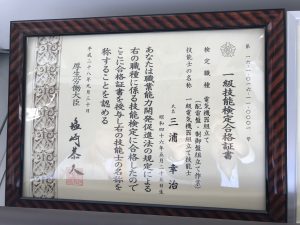 一級技能検定合格証書
検定職種 電気機器組立て
(配電盤・制御盤組立て作業)
技能士の名称 一級電気機器組立て技能士
氏名 三浦幸治
昭和四十六年五月二十五日生
あなたは職業能力開発促進法の規定による
右の職種に係る技能検定に合格したので
ここに合格証書を授与し右の技能士の名称を
称することを認める
平成二十八年九月三十日
厚生労働大臣
塩崎恭久